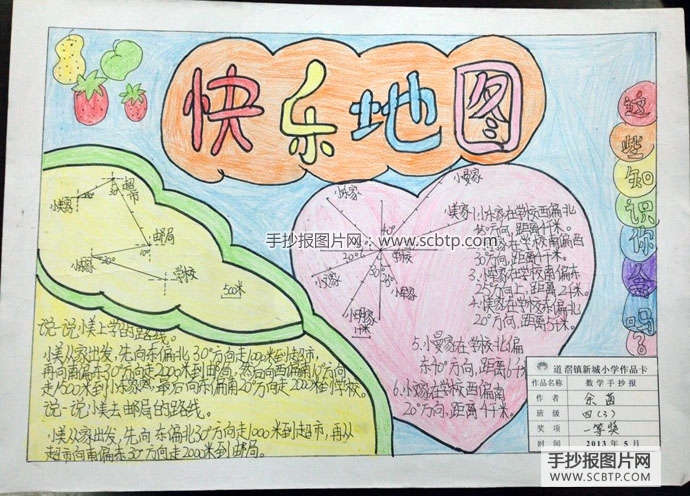 快乐地图
这些知识你会吗?
小美家
超市
邮局
小东家
学校
500米
小东家
小曼家
小美家
40°
20°
学校
30°
25°
小文家
小军家
小明家
1千米
手抄报图片网:www.scbtp.com
说一说小美上学的路线。
小美从家出发,先向东偏北30°方向走1000米到超市,
再向南偏东30°方向走2000米到邮局,然后向西偏南10°方向
走1500米到小东家,最后向东偏南20°方向走2000米到学校。
说一说小美去邮局的路线。
小美从家出发,先向东偏北30°方向走1000米到超市,再从
超市向南偏东30°方向走2000米到邮局。
1.小东家在学校西偏北
方向,距离4千米。
家在学校南偏西
30°方向,距离4千米。
3.小
家在学校南偏东
25°方向上,距离24千米。
家在学校东偏北
20°方向,距离5千米。
5.小曼家在学校北偏
东40°方向,距离6千米
家在学校西偏南
20°方向,距离4千米。
道滘镇新城小学作品卡
作品名称 数学手抄报
作者 余茜
班级 四(3)
奖项 一等奖
时间 2013年5月
手抄报图片网
WWW.SCBTP.COM